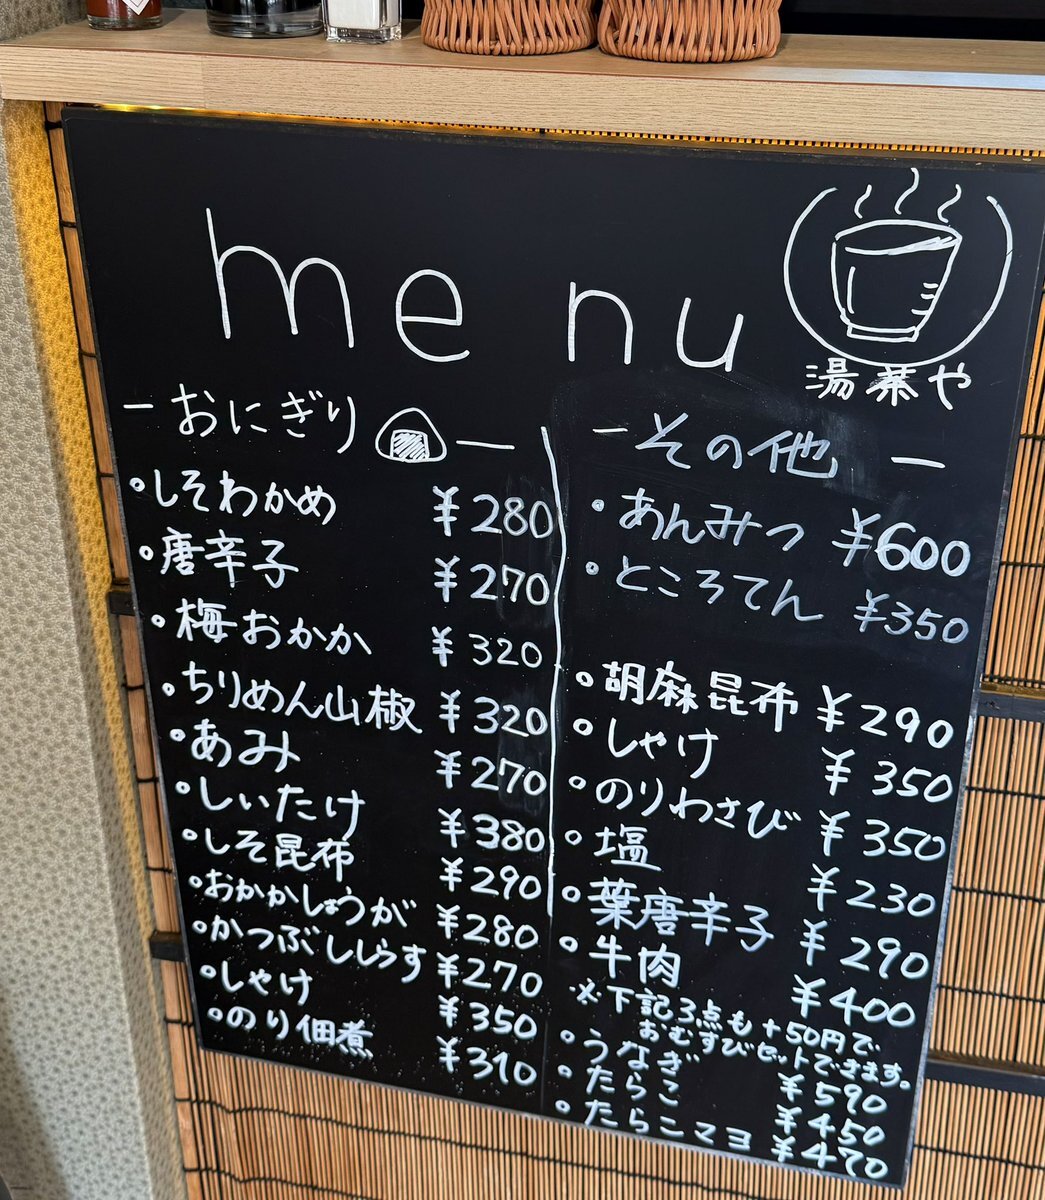 menu
湯蒸や
ーおにぎりー
・しそわかめ ¥280
・唐辛子 ¥270
・梅おかか ¥320
・ちりめん山椒 ¥320
・あみ ¥270
・しぃたけ ¥380
・しそ昆布 ¥290
・おかかしょうが ¥280
・かつぶししらす ¥270
・しゃけ ¥350
・のり佃煮 ¥310
ーその他ー
・あんみつ ¥600
・ところてん ¥350
・胡麻昆布 ¥290
・しゃけ ¥350
・のりわさび ¥350
・塩 ¥230
・葉唐辛子 ¥290
・牛肉 ¥400
※下記3点も+50円で
おむすびセットできます。
・うなぎ ¥590
・たらこ ¥450
・たらこマヨ ¥470